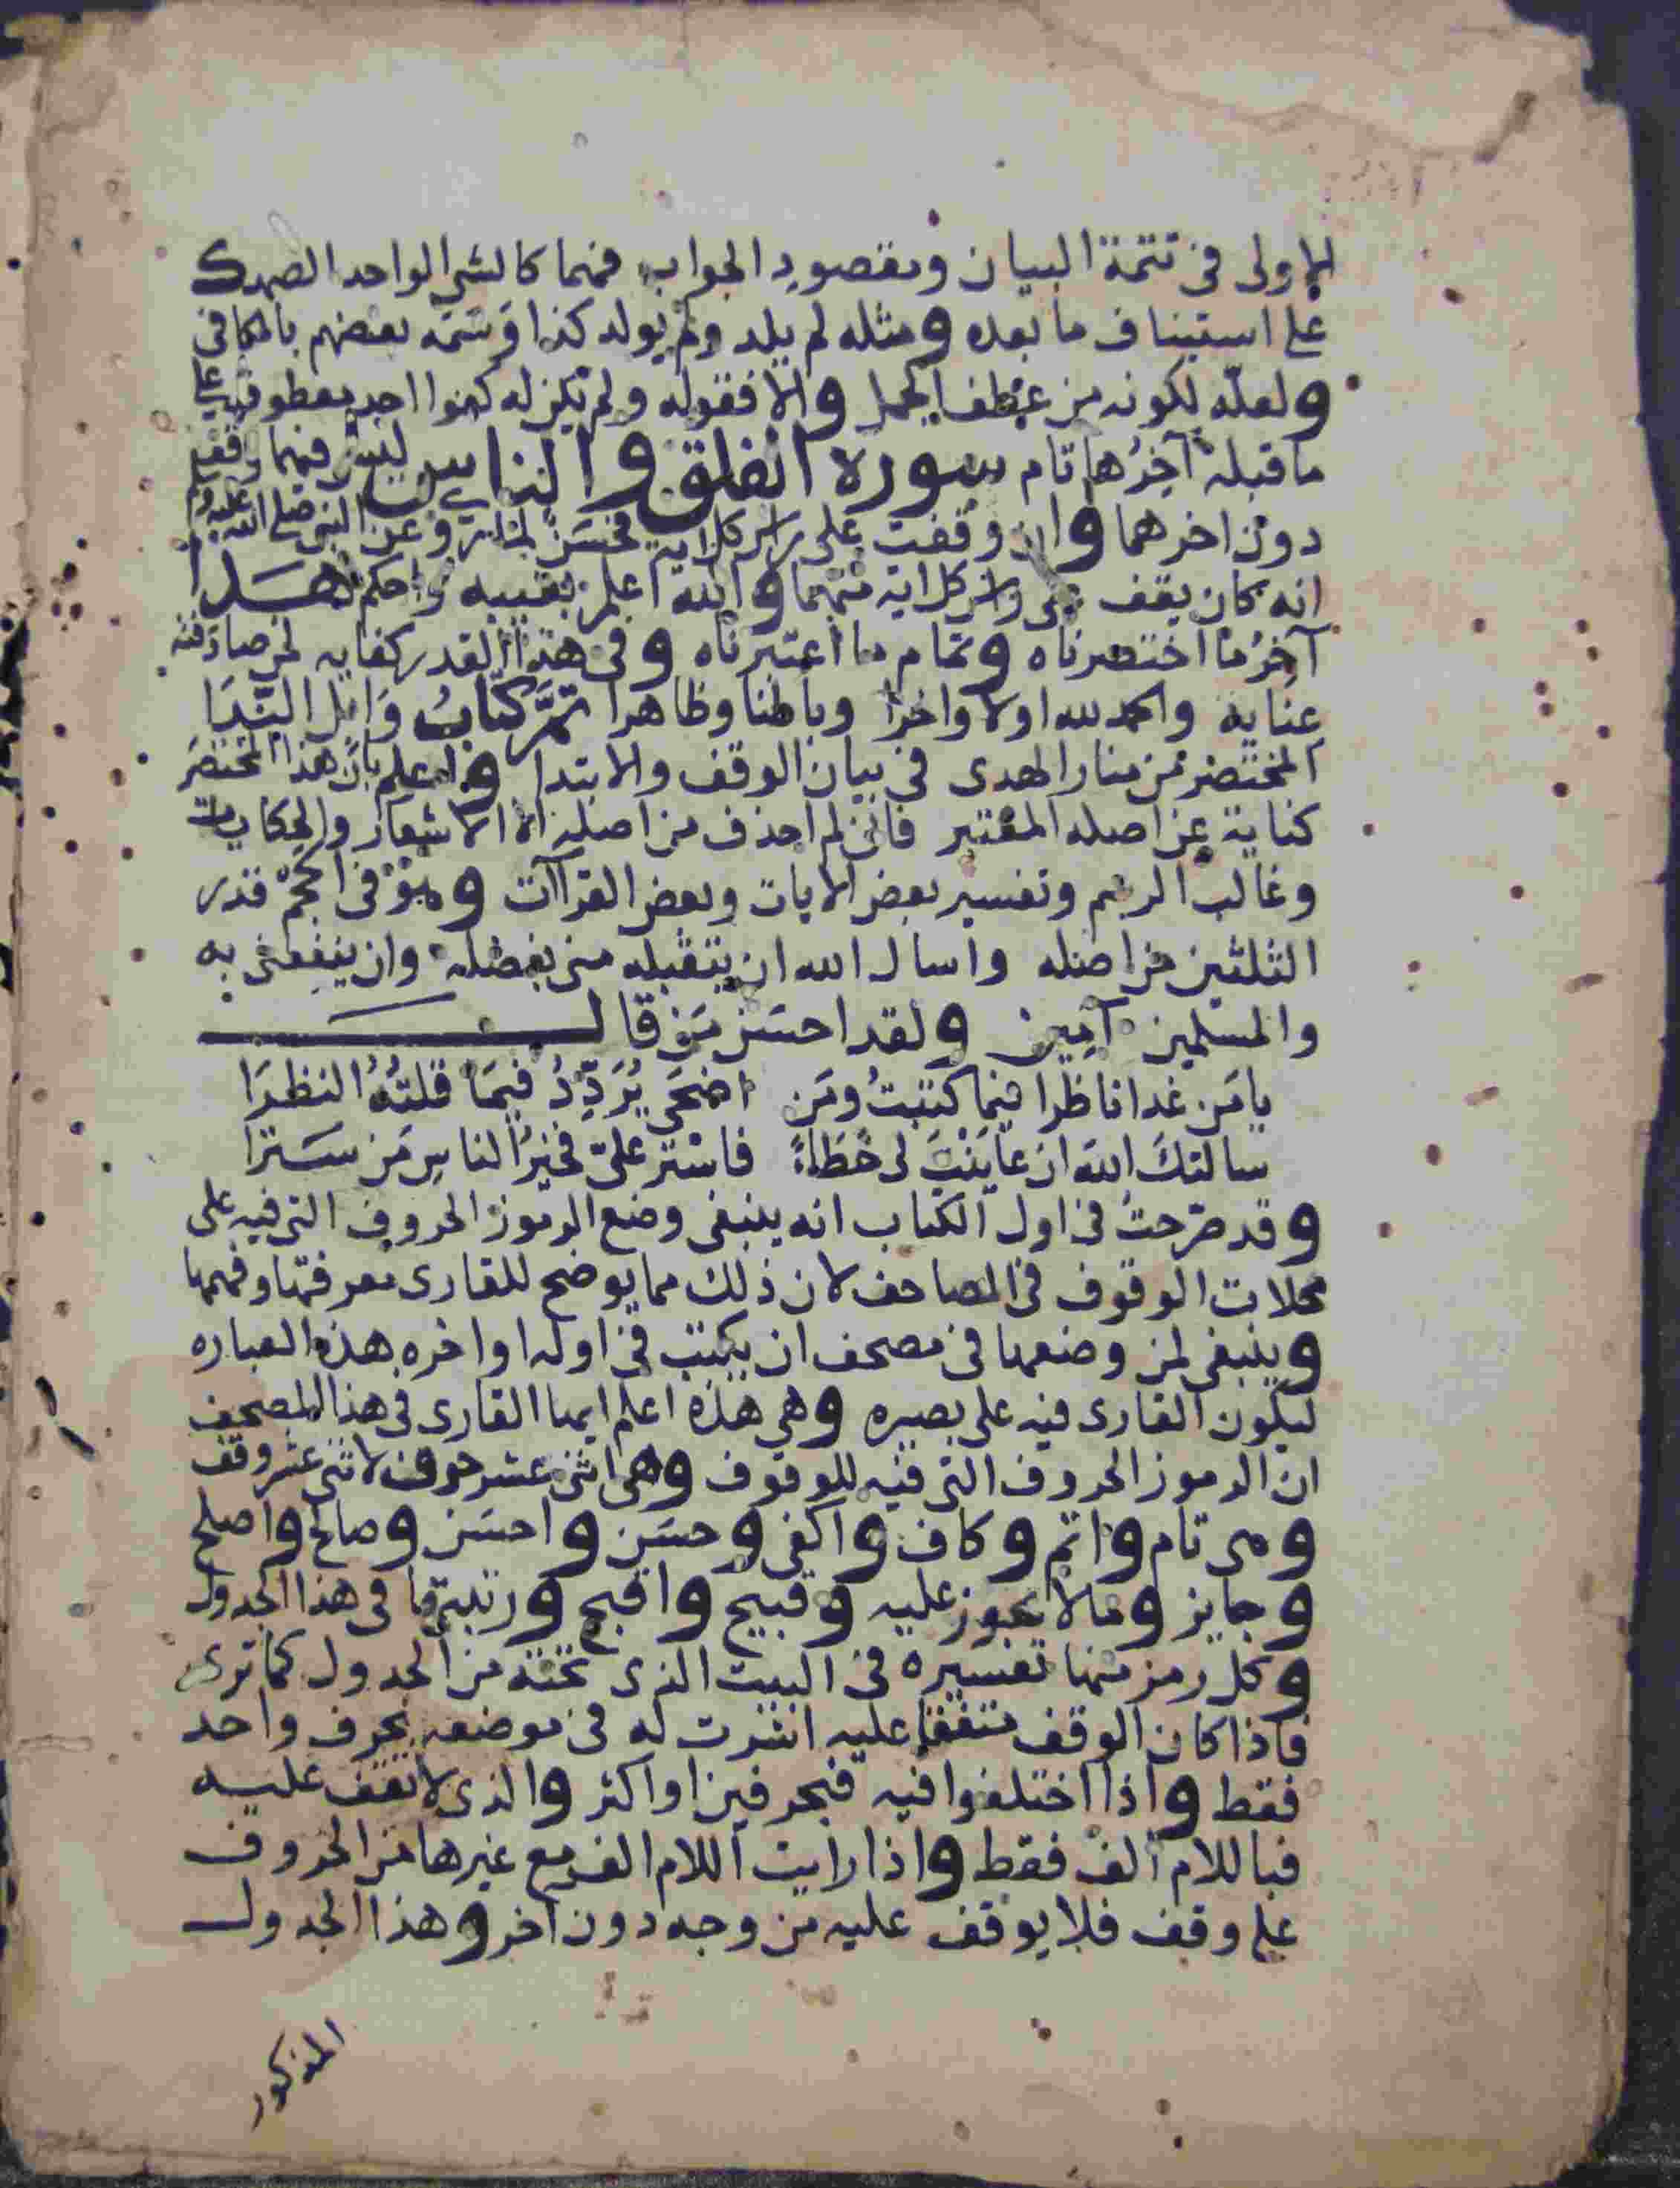 للاولى فى تتمة البيان ومقصود الجواب فهما كالشى الواحد الصمد ك
على استيناف ما بعده ومثله لم يلد ولم يولد كذا وسمه بعضهم بالكافى
ولعله لكونه من عطف الجمل والا فقوله ولم يكن له كفوا احد معطوف على
ما قبله آخرُها تام سورة الفلق والناس ليس فيهما وقف
دون اخرهما وان وقفت على راس كل اية فحسن لما روى عن النبى صلى الله عليه وسلم
انه كان يقف على راس كل اية منهما والله اعلم بغيبه واحكم هذا
آخرُ ما اختصرناه وتمام ما اعتبرناه وفى هذا القدر كفايه لمن صادفته
عناية والحمد لله اولا واخرا وباطنا وظاهرا تمَّ كتابُ وَابل النَّدَا
المختصر من منار الهدى فى بيان الوقف والابتدا واعلم بان هذا المختصر
كناية عن اصله المعتبر فانى لم احذف من اصله الا الاشعار والحكايات
وغالب الرسم وتفسير بعض الايات وبعض القراآت وهو فى الحجم قدر
الثلثين من اصله واسال الله ان يتقبله منى بفضله وان ينفعنى به
والمسلمين آمين ولقد احسن من قال
يا مَن غدا ناظرا فيما كتبتُ ومَن اضحَى يُرَدِّدُ فيمَا قلتُهُ النظرَا
سالتكَ الله ان عاينْتَ لى خَطَاءً فاسْتر علىّ فخيرُ الناس مَن سَتَرَا
وقد صَرحتُ فى اول الكتاب انه ينبغى وضع الرموز الحروف التى فيه على
محلات الوقوف فى المصاحف لان ذلك مما يوضح للقارى معرفتها وفهمها
وينبغى لمن وضعها فى مصحف ان يكتب فى اوله او اخره هذه العباره
ليكون القارى فيه على بصيره وهى هذه اعلم ايها القارى فى هذا المصحف
ان الرموز الحروف التى فيه للوقوف وهى اثنى عشر حروف لاثنى عشر وقف
وهى تام واتم وكاف واكفى وحسَن واحسَن وصالح واصلح
وجايز وما لا يجوز عليه وقبيح واقبح ورتبتها فى هذا الجدول
وكل رمز منها تفسيره فى البيت الذى تحته من الجدول كما ترى
فاذا كان الوقف متفقا عليه اشرت له فى موضعه بحرف واحد
فقط واذا اختلفوا فيه فبحرفين او اكثر والذى لا تقف عليه
فباللام ألف فقط واذا رايت اللام الف مع غيرها من الحروف
على وقف فلا يوقف عليه من وجه دون آخر وهذا الجدول
المذكور